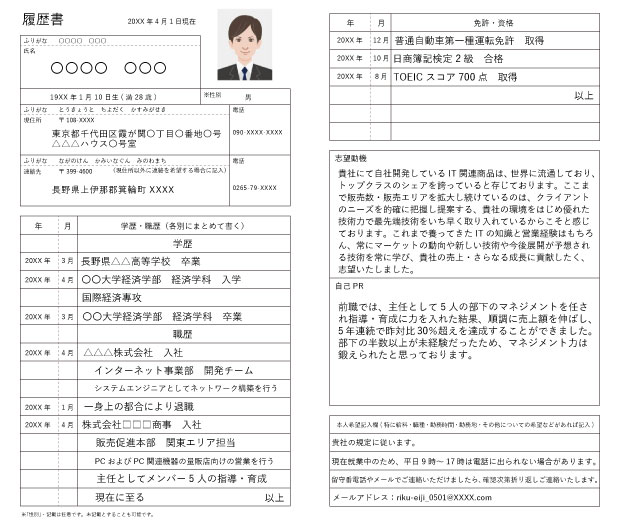 履歴書
20XX 年 4 月 1 日現在
ふりがな 〇〇〇〇 〇〇〇
氏名
〇〇〇〇 〇〇〇
19XX 年 1 月 10 日生 ( 満 28 歳 )
※性別 男
ふりがな とうきょうと ちよだく かすみがせき
電話
現住所 〒108-XXXX
東京都千代田区霞が関〇丁目〇番地〇号
090-XXXX-XXXX
△△△ハウス〇号室
ふりがな ながのけん かみいなぐん みのわまち
電話
連絡先 〒399-4600 (現住所以外に連絡を希望する場合に記入)
長野県上伊那郡箕輪町 XXXX
0265-79-XXXX
年 月 学歴・職歴 (各別にまとめて書く)
学歴
20XX 年 3 月 長野県△△高等学校 卒業
20XX 年 4 月 〇〇大学経済学部 経済学科 入学
国際経済専攻
20XX 年 3 月 〇〇大学経済学部 経済学科 卒業
職歴
20XX 年 4 月 △△△株式会社 入社
インターネット事業部 開発チーム
システムエンジニアとしてネットワーク構築を行う
20XX 年 1 月 一身上の都合により退職
20XX 年 4 月 株式会社□□□商事 入社
販売促進本部 関東エリア担当
PC および PC 関連機器の量販店向けの営業を行う
主任としてメンバー 5 人の指導・育成
現在に至る 以上
※「性別」・記載は任意です。未記載とすることも可能です。
年 月 免許・資格
20XX 年 12 月 普通自動車第一種運転免許 取得
20XX 年 10 月 日商簿記検定 2 級 合格
20XX 年 8 月 TOEIC スコア 700 点 取得
以上
志望動機
貴社にて自社開発している IT 関連商品は、世界に流通しており、
トップクラスのシェアを誇っていると存じております。ここま
で販売数・販売エリアを拡大し続けているのは、クライアント
のニーズを的確に把握し提案する、貴社の環境をはじめ優れた
技術力で最先端技術をいち早く取り入れているからこそと感じ
ております。これまで養ってきた IT の知識と営業経験はもちろ
ん、常にマーケットの動向や新しい技術や今後展開が予想され
る技術を常に学び、貴社の売上・さらなる成長に貢献したく、
志望いたしました。
自己 PR
前職では、主任として 5 人の部下のマネジメントを任さ
れ指導・育成に力を入れた結果、順調に売上額を伸ばし、
5 年連続で昨対比 30%超えを達成することができました。
部下の半数以上が未経験だったため、マネジメント力は
鍛えられたと思っております。
本人希望記入欄 ( 特に給料・職種・勤務時間・勤務地・その他についての希望などがあれば記入 )
貴社の規定に従います。
現在就業中のため、平日 9 時〜 17 時は電話に出られない場合があります。
留守番電話やメールでご連絡いただけましたら、確認次第折り返しご連絡いたします。
メールアドレス：riku-eiji_0501@XXXX.com